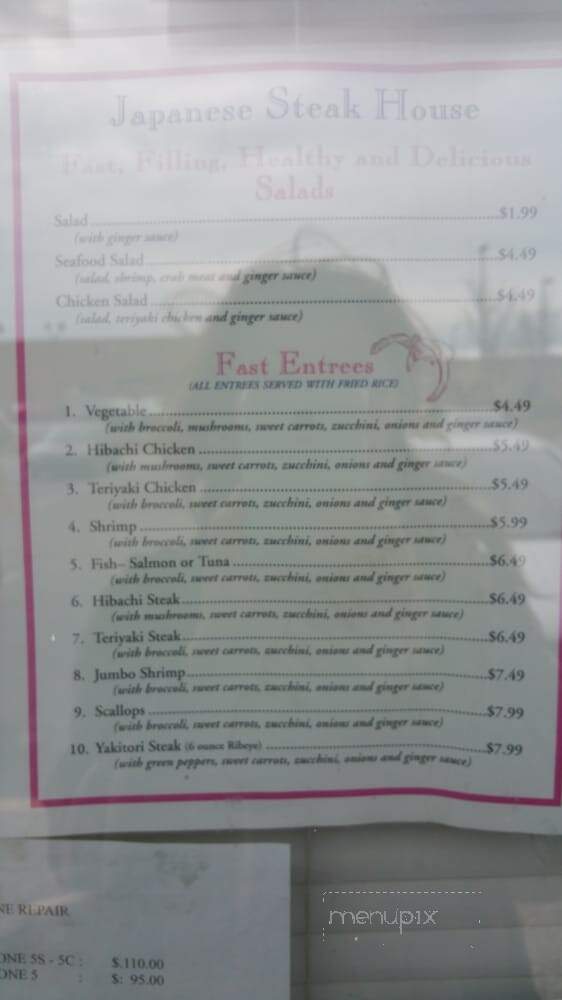 Japanese Steak House
Fast, Filling, Healthy and Delicious
Salads
Salad $1.99
(with ginger sauce)
Seafood Salad $4.49
(salad, shrimp, crab meat and ginger sauce)
Chicken Salad $4.49
(salad, teriyaki chicken and ginger sauce)
Fast Entrees
(ALL ENTREES SERVED WITH FRIED RICE)
1. Vegetable $4.49
(with broccoli, mushrooms, sweet carrots, zucchini, onions and ginger sauce)
2. Hibachi Chicken $5.49
(with mushrooms, sweet carrots, zucchini, onions and ginger sauce)
3. Teriyaki Chicken $5.49
(with broccoli, sweet carrots, zucchini, onions and ginger sauce)
4. Shrimp $5.99
(with broccoli, sweet carrots, zucchini, onions and ginger sauce)
5. Fish– Salmon or Tuna $6.49
(with broccoli, sweet carrots, zucchini, onions and ginger sauce)
6. Hibachi Steak $6.49
(with mushrooms, sweet carrots, zucchini, onions and ginger sauce)
7. Teriyaki Steak $6.49
(with broccoli, sweet carrots, zucchini, onions and ginger sauce)
8. Jumbo Shrimp $7.49
(with broccoli, sweet carrots, zucchini, onions and ginger sauce)
9. Scallops $7.99
(with broccoli, sweet carrots, zucchini, onions and ginger sauce)
10. Yakitori Steak (6 ounce Ribeye) $7.99
(with green peppers, sweet carrots, zucchini, onions and ginger sauce)
NE REPAIR
ONE 5S - 5C : $.110.00
ONE 5 : $: 95.00
menupix